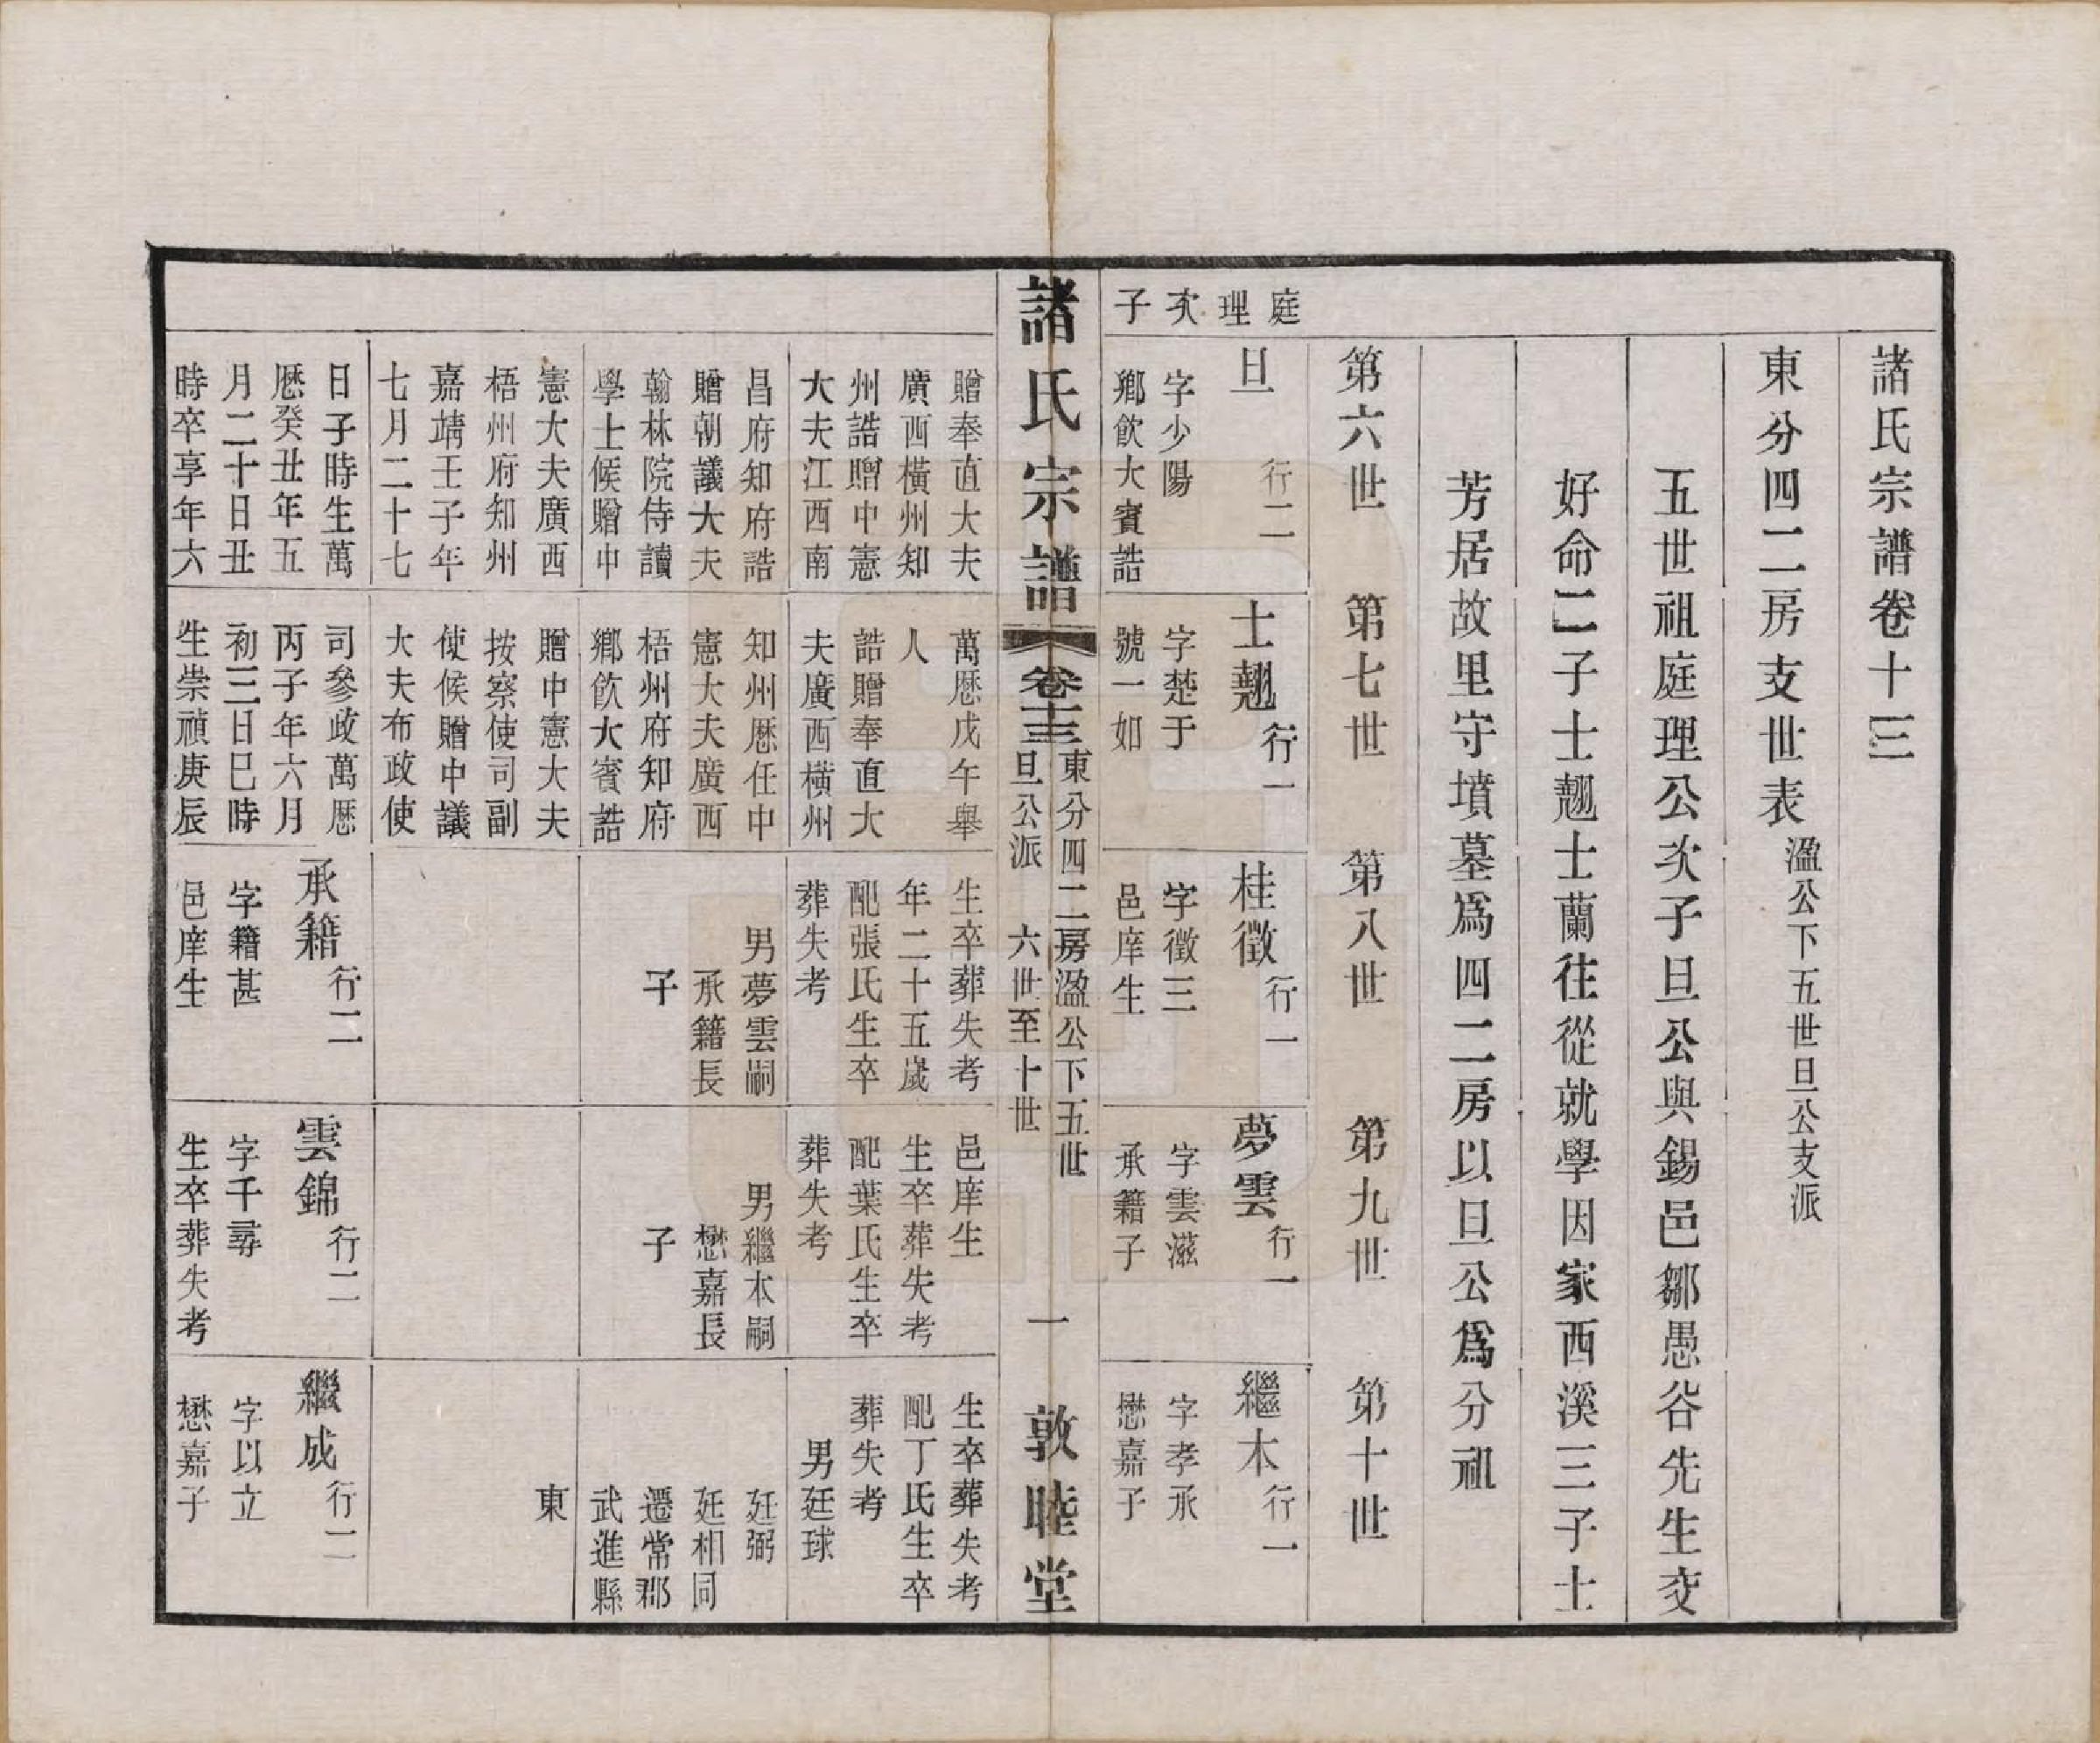 諸氏宗譜卷十三
東分四二房支世表
溋公下五世旦公支派
五世祖庭理公次子旦公與錫邑鄒愚谷先生交
好命二子士翹士蘭往從就學因家西溪三子士
芳居故里守墳墓爲四二房以旦公爲分祖
第六世
第七世
第八世
第九世
第十世
庭理次子
旦
行二
字少陽
鄉飲大賓誥
士翹
行一
字楚于
號一如
桂徵
行一
字徵三
邑庠生
夢雲
行一
字雲滋
承籍子
繼木
行一
字孝承
懋嘉子
諸氏宗譜
卷十三
東分四二房溋公下五世
旦公派
六世至十世
一
敦睦堂
贈奉直大夫
廣西橫州知
州誥贈中憲
大夫江西南
昌府知府誥
贈朝議大夫
翰林院侍讀
學士候贈中
憲大夫廣西
梧州府知州
嘉靖壬子年
七月二十七
日子時生萬
厯癸丑年五
月二十日丑
時卒享年六
萬厯戊午舉
人
誥贈奉直大
夫廣西橫州
知州厯任中
憲大夫廣西
梧州府知府
鄉飲大賓誥
贈中憲大夫
按察使司副
使候贈中議
大夫布政使
司參政萬厯
丙子年六月
初三日巳時
生崇禎庚辰
生卒葬失考
年二十五歲
配張氏生卒
葬失考
男夢雲嗣
承籍長
子
承籍
行二
字籍甚
邑庠生
邑庠生
生卒葬失考
配葉氏生卒
葬失考
男繼木嗣
懋嘉長
子
雲錦
行二
字千尋
生卒葬失考
生卒葬失考
配丁氏生卒
葬失考
男廷球
廷弼
廷相同
遷常郡
武進縣
東
繼成
行二
字以立
懋嘉子